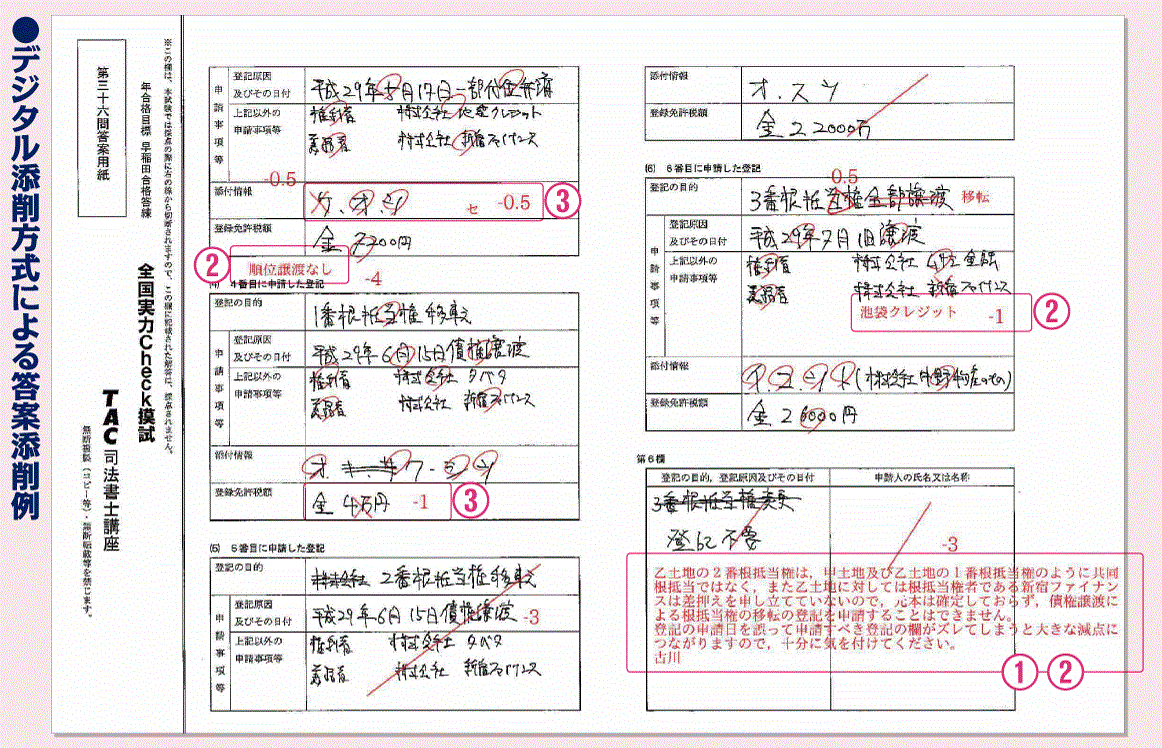 ●デジタル添削方式による答案添削例
※この欄は、本試験では採点の際に右の線から切断されますので、この欄に記載された解答は、採点されません。
年合格目標 早稲田合格答練
全国実力Check模試
第三十六問答案用紙
TAC司法書士講座
無断複製（コピー等）・無断転載等を禁じます。
申請事項等
登記原因及びその日付
平成29年5月17日一部代位弁済
上記以外の申請事項等
権利者 株式会社池袋クレジット
義務者 株式会社新宿ファイナンス
-0.5
添付情報
ケ.オ.シ
セ -0.5
③
登録免許税額
金7200円
② 順位譲渡なし
-4
(4) 4番目に申請した登記
登記の目的
1番根抵当権移転
申請事項等
登記原因及びその日付
平成29年6月15日債権譲渡
上記以外の申請事項等
権利者 株式会社タバタ
義務者 株式会社新宿ファイナンス
添付情報
登録免許税額
金4万円 -1 ③
(5) 5番目に申請した登記
登記の目的
2番根抵当権移転
申請事項等
登記原因及びその日付
平成29年6月15日債権譲渡 -3
上記以外の申請事項等
権利者 株式会社タバタ
義務者 株式会社新宿ファイナンス
添付情報
オ.ス.ツ
登録免許税額
金22000万
(6) 6番目に申請した登記
0.5
登記の目的
3番根抵当権全部譲渡 移転
申請事項等
登記原因及びその日付
平成29年7月1日譲渡
上記以外の申請事項等
義務者 株式会社新宿ファイナンス
池袋クレジット -1 ②
添付情報
登録免許税額
金26000円
第6欄
登記の目的，登記原因及びその日付
申請人の氏名又は名称
3番根抵当権変更
登記不要
-3
乙土地の2番根抵当権は，甲土地及び乙土地の1番根抵当権のように共同
根抵当ではなく，また乙土地に対しては根抵当権者である新宿ファイナン
スは差押えを申し立てていないので，元本は確定しておらず，債権譲渡に
よる根抵当権の移転の登記を申請することはできません。
登記の申請日を誤って申請すべき登記の欄がズレてしまうと大きな減点に
つながりますので，十分に気を付けてください。
古川
①-②